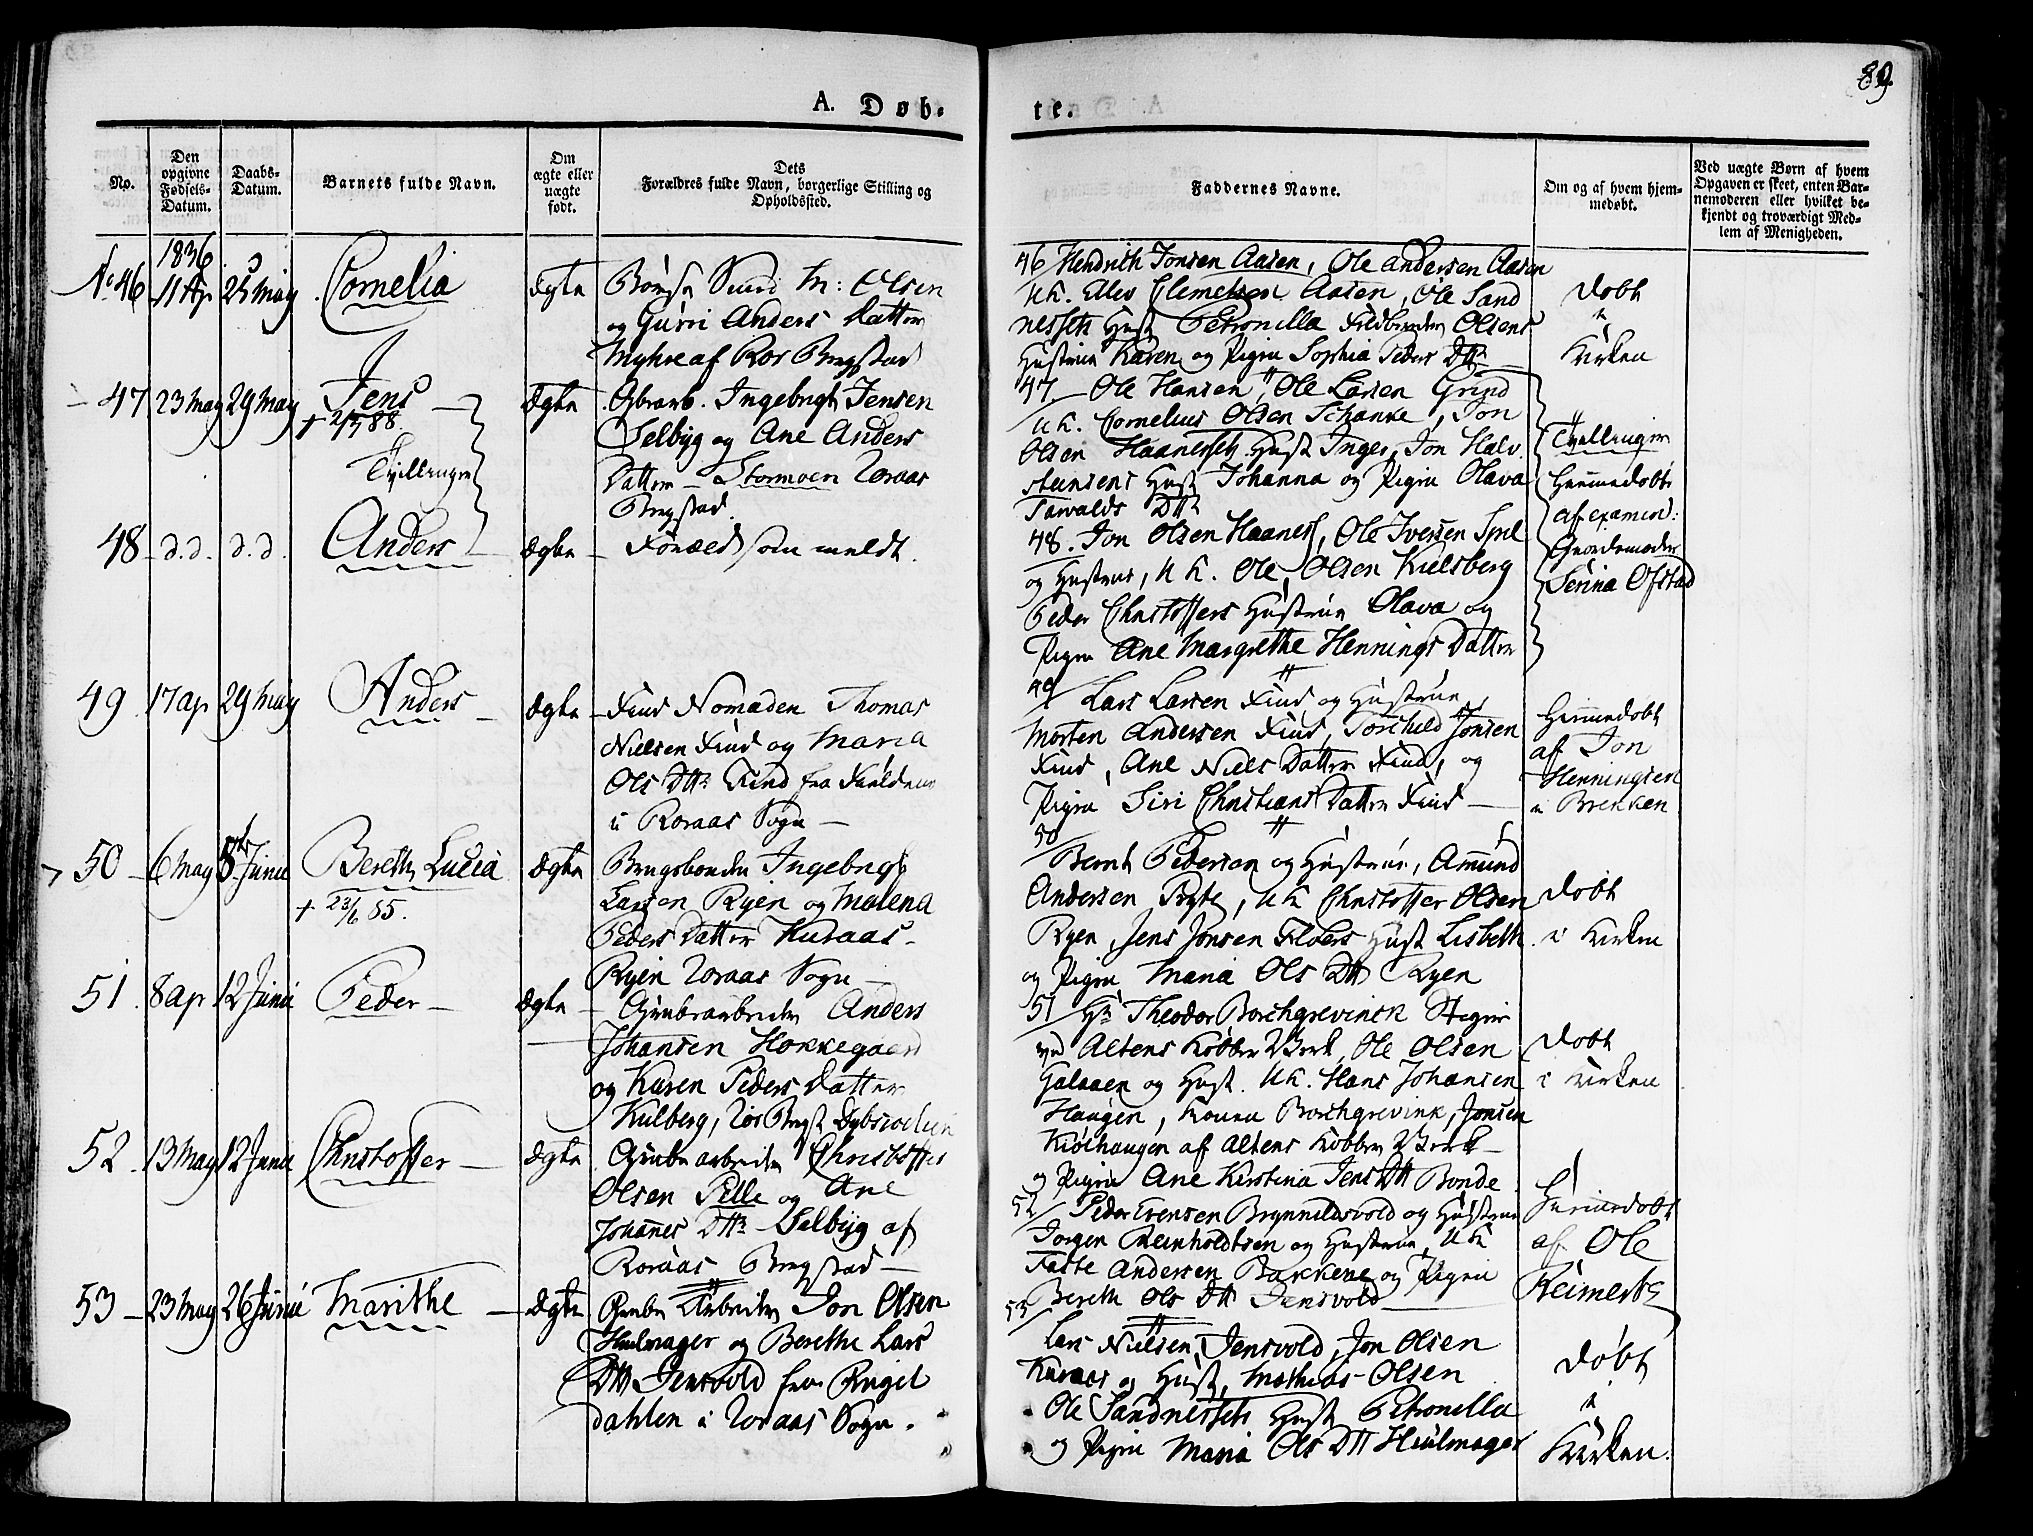 89.
A. Døb-
te.
No.
Den
opgivne
Fødsels-
Datum.
Daabs-
Datum.
Barnets fulde Navn.
Om
ægte eller
uægte
født.
Dets
Forældres fulde Navn, borgerlige Stilling og
Opholdssted.
Faddernes Navne.
Om og af hvem hjem-
medøbt.
Ved uægte Børn af hvem
Opgaven er skeet, enten Bar-
nemoderen eller hvilket be-
kjendt og troværdigt Med-
lem af Menigheden.
1836
No 46 11 Ap 25 May Cornelia Ægte
Olsen
og Guri Anders Datter
Myhre af Ror Bergstad
46/ Hendrich Jonsen Aasen, Ole Andersen Aasen
UK. Ellev Clemetsen Aasen, Ole Sand
nessets Hust Petronella Olsens
Hustrue Karen og Pigen Sophia Peders Dttr
Døbt
i
Kirken
47 23 May 29 May Jens Ægte
+ 2/7 88.
Tvillinger
Ingebrigt Jensen
Selbyg og Ane Anders
Datter - Stormoen Roraas
Bergstad.
47. Ole Hansen, Ole Larsen Grind
UK. Cornelius Olsen Schanke, Jon
Olsen Haanesset Hust Inger, Jon Halv
steensens Hust Johanna og Pigen Olava
Tarvalds Dttr
Tvillinger
Hiemmedøbt
af examin:
Giordemoder
Serina Ofstad
48 - d.d. d.d. Anders Ægte
Foræld som meldt.
48. Jon Olsen Haaness, Ole Iversen
og Hustrue, UK. Ole Olsen Kielsberg
Peder Christoffers Hustrue Olava og
Pigen Ane Margrethe Hennings Datter
49 17 ap 29 May Anders Ægte
Find Nomaden Thomas
Nielsen Find og Maria
Ols Dttr Find fra Fieldene
i Roraas Sogn
49/ Lars Larsen Find og Hustrue
Morten Andersen Find, Torchild Jonsen
Find, Ane Niels Datter Find, og
Pigen Siri Christians Datter Find
Hiemmedøbt
af Jon
Henningsen
i Brekken
50 6 May 5te Junii Bereth Lucia Ægte
+ 23/6 85.
Bergsbonden Ingebrigt
Larsen Ryen og Malena
Peders Datter Kuraas
Ryen Roraas Sogn
50/
Bernt Pedersen og Hustrue, Amund
Andersen UK Christoffer Olsen
Ryen, Jens Jonsen Floers Hust Lisbeth
og Pigen Maria Ols Dtt Ryen
Døbt
i Kirken
51 8 ap 12 Junii Peder Ægte
Grubearbeider Anders
Johansen Hokkegaard
og Karen Peders Datter
Kulberg, Ror Bergst
51/ Hr Theodor Borchgrevinck Stiger
ved Altens Kobber Verk, Ole Olsen
Galaaen og Hust. UK. Hans Johansen
Haugen, Borchgrevink, Jonsen
Kiølhaugen af Altens Kobber Verk
og Pigen Ane Kirstina Jens Dtt Bonde
Døbt
i Kirken
52. 13 May 12 Junii Christoffer Ægte
Grube arbeider Christoffer
Olsen Pille og Ane
Johannes Dttr Selbyg af
Roraas Bergstad
52/ Peder Evensen Brynnildsvold og Hustrue
Jorgen Reinholdtsen og Hustrue, UK
Faste Andersen Bakkene og Pigen
Bereth Ols Dtt Jensvold
Hiemmedøbt
af Ole
Reimert
53 23 May 26 Junii Marithe Ægte
Grube Arbeider Jon Olsen
Hiulmager og Berethe Lars
Dtt Jensvold fra Rugel
dahlen i Roraas Sogn.
53/
Lars Nielsen Jensvold, Jon Olsen
Kuraas og Hust, Mathias Olsen
Ole Sandnessets Hust Petronella
og Pigen Maria Ols Dtt Hiulmager
Døbt
i
Kirken.